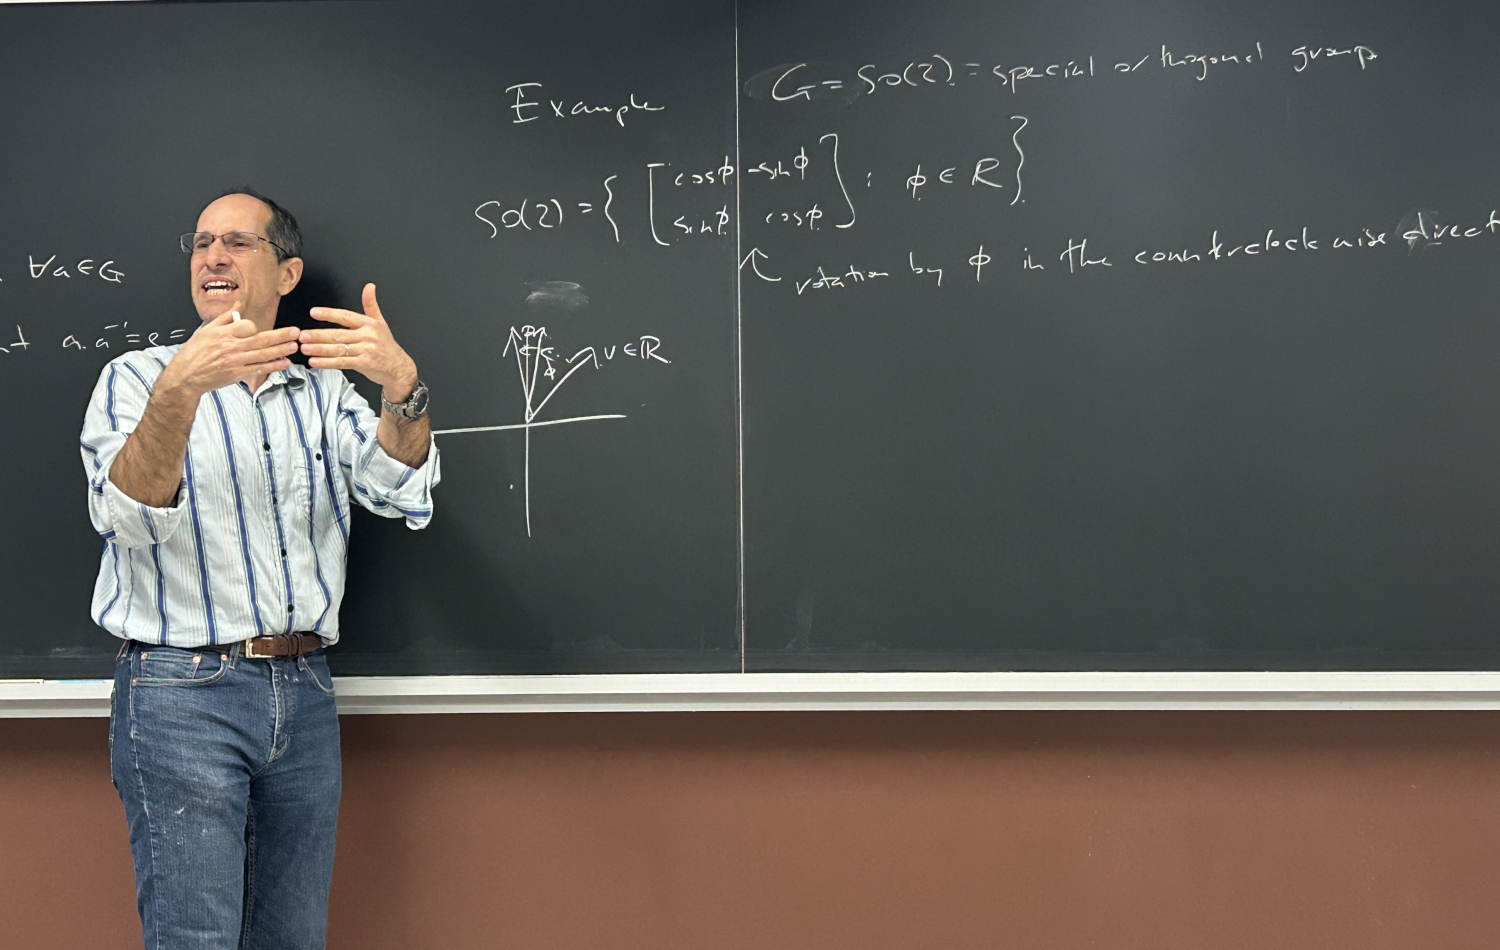 ∀a∈G
a·a⁻¹=e=
Example
G = SO(2) = special orthogonal group
SO(2) = { [ cosφ -sinφ
sinφ cosφ ] : φ ∈ R }
rotation by φ in the counterclockwise direct
φ
v ∈ ℝ